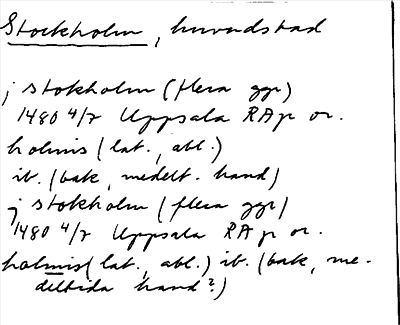 Stockholm, huvudstad
j stokholm (flera ggr)
1480 4/7 Uppsala RAp or.
holmis (lat., abl.)
ib. (bak, medelt. hand)
j stokholm (flera ggr)
1480 4/7 Uppsala RAp or.
holmis (lat., abl.) ib. (bak, me-
deltida hand?)